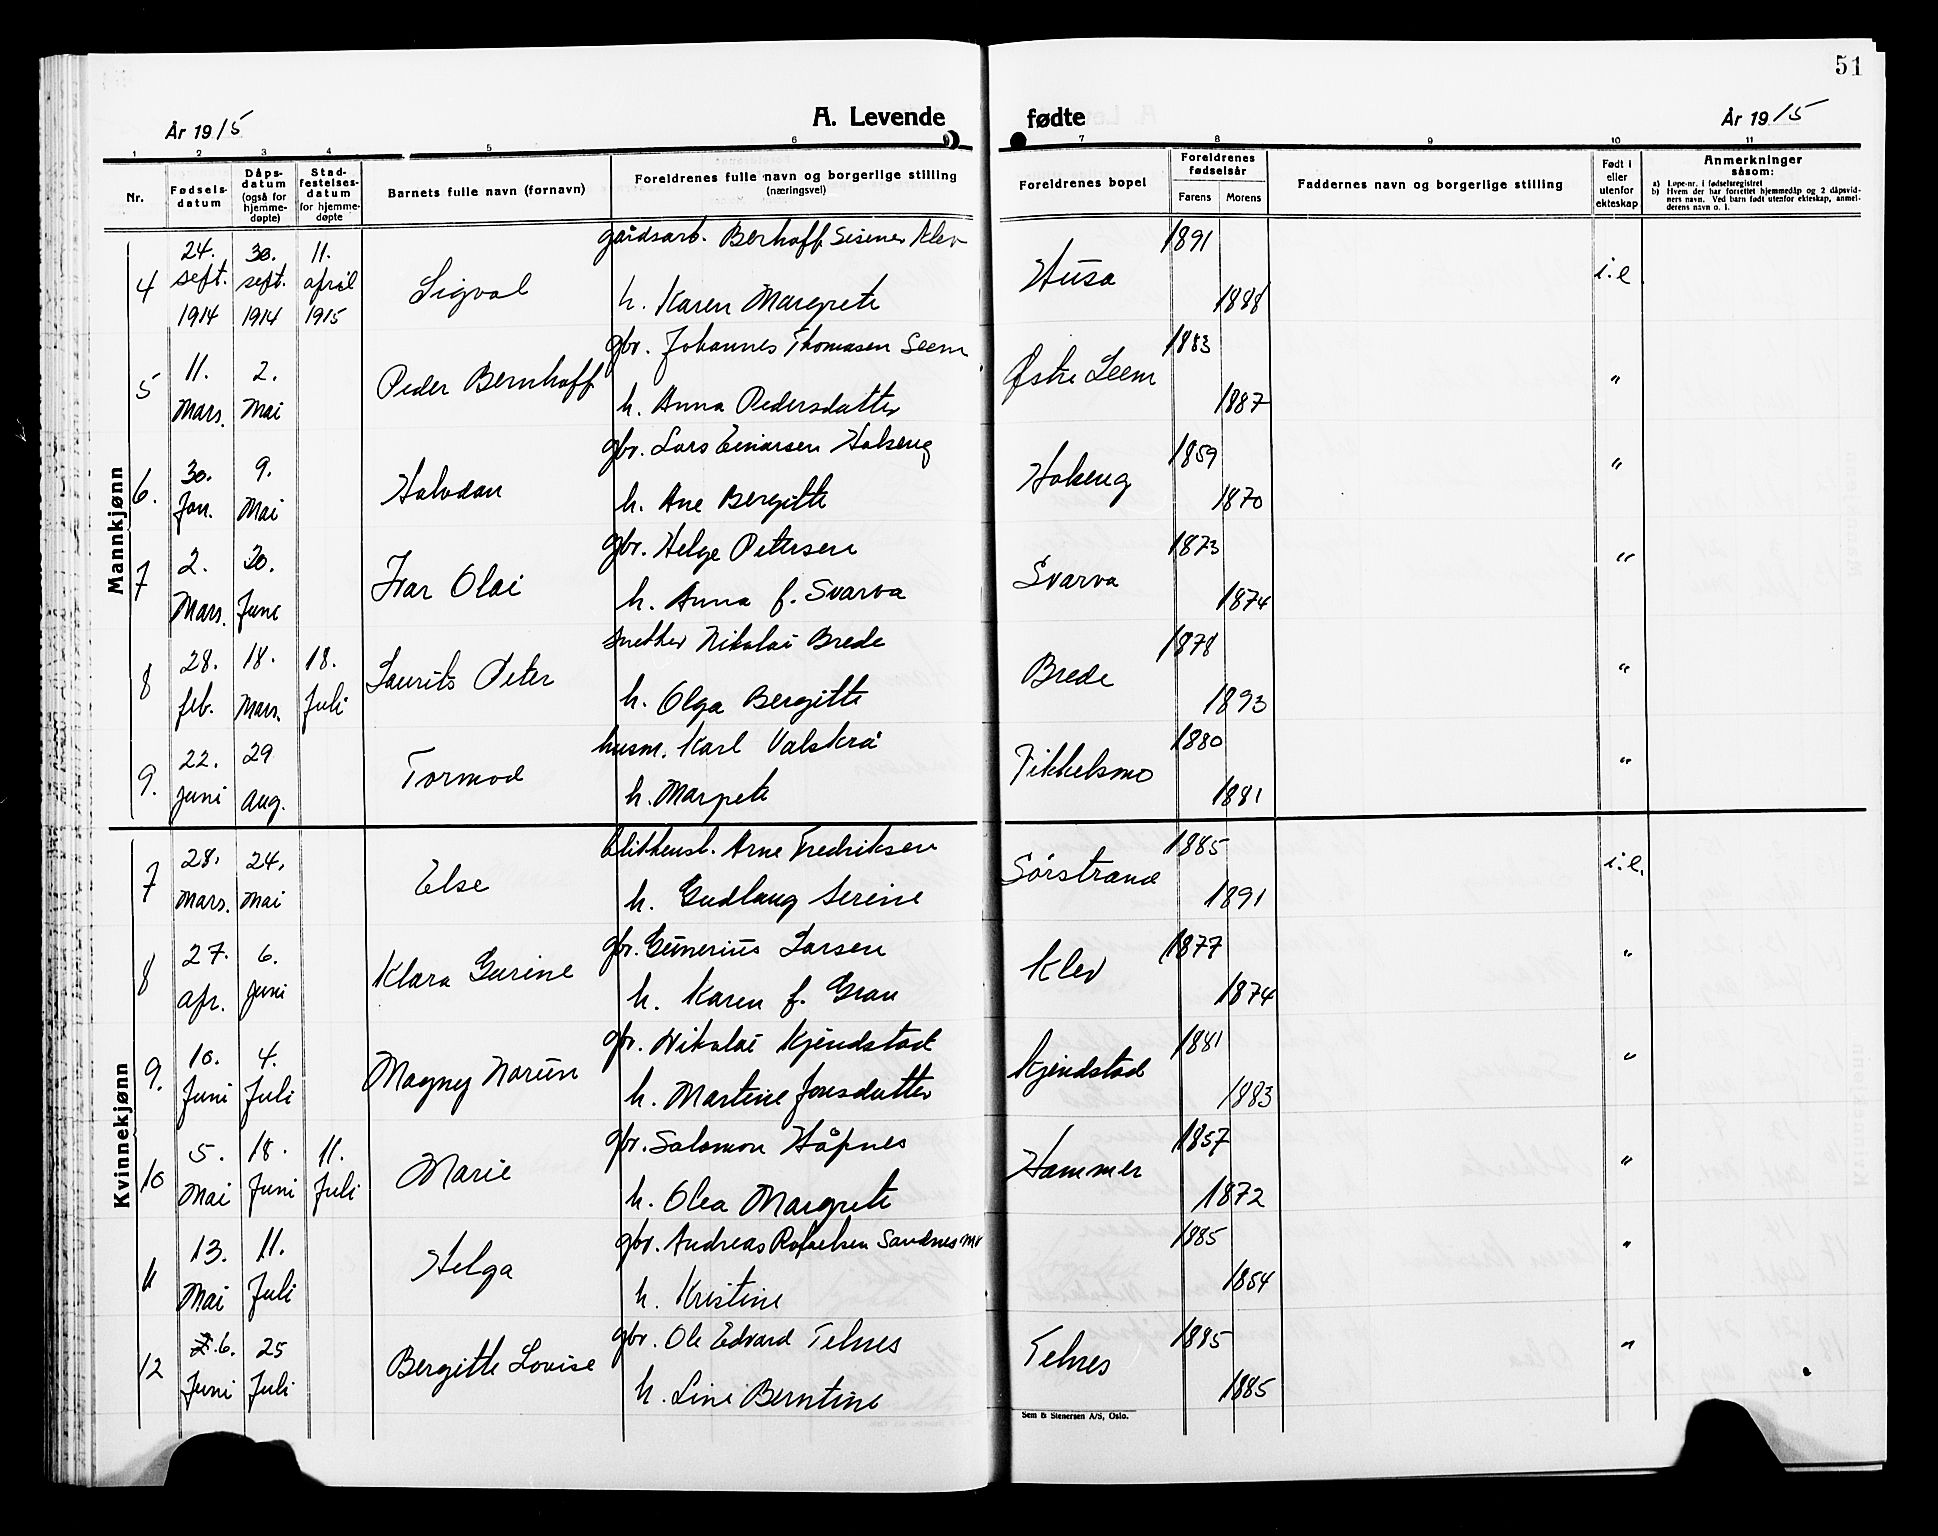 51
År 1915
A. Levende fødte
År 1915
1 2 3 4 5 6 7 8 9 10 11
Nr.
Fødsels-
datum
Dåps-
datum
(også for
hjemme-
døpte)
Stad-
festelses-
datum
for hjemme-
døpte
Barnets fulle navn (fornavn)
Foreldrenes fulle navn og borgerlige stilling
(næringsvei)
Foreldrenes bopel
Foreldrenes
fødselsår
Farens Morens
Faddernes navn og borgerlige stilling
Født i
eller
utenfor
ekteskap
Anmerkninger
såsom:
a) Løpe-nr. i fødselsregistret
b) Hvem der har forrettet hjemmedåp og 2 dåpsvid-
ners navn. Ved barn født utenfor ekteskap, anmel-
derens navn o. l.
Mannkjønn
4 24. sept. 1914 30. sept. 1914 11. april 1915 Sigval
gårdsarb. Berhoff Klev
h. Karen Margrete
Husa 1891 1888 i.e.
5 11. Mars. 2. Mai Peder Bernhoff
gbr. Johannes Thomasen Seem
h. Anna Pedersdatter
Østre Seem 1883 1887 "
6. 30. Jan. 9. Mai Halvdan
gbr. Lars Einarsen
h. Ane Bergitte
1859 1870 "
7 2. Mars. 20. June Ivar Olai
gbr. Helge Petersen
h. Anna f. Svarva
Svarva 1873 1874 "
8 28. feb. 18. Mars. 18. Juli Laurits Peter
Nikolai Brede
h. Olga Bergitte
Brede 1878 1893 "
9. 22. juni 29 aug. Tormod
husm. Karl Valskrå
h. Margrete
1880 1881 "
Kvinnekjønn
7 28. Mars. 24. Mai Else
blikkensl. Arne Fredriksen
h. Gudlaug Serine
Sørstrand 1885 1891 i.e.
8 27. apr. 6. juni Klara Gurine
gbr. Gunerius Larsen
h. Karen f. Gran
Klev 1877 1874 "
9. 10. Juni 4. Juli Magny Norun
gbr. Nikolai Kjendstad
h. Martine Jonsdatter
Kjendstad 1881 1883 "
10 5. Mai 18. Juni 11. Juli Marie
gbr. Salomon Håpnes
h. Olea Margrete
Hammer 1857 1872 "
11 13. Mai 11. Juli Helga
gbr. Andreas Rafaelsen
h. Kristine
1885 1854 "
12 6. Juni 25 Juli Bergitte Lovise
gbr. Ole Edvard Telnes
h. Line Berntine
Telnes 1885 1885 "
Sem & Stenersen A/S, Oslo.